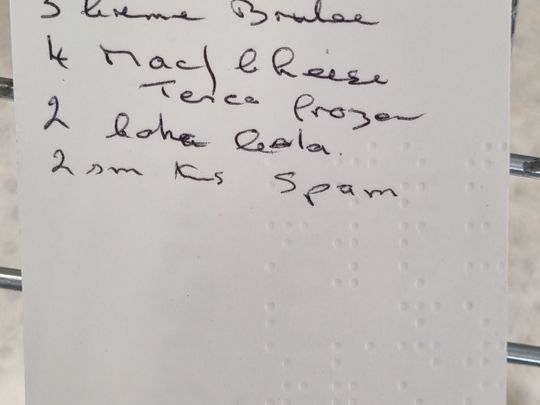 3 Creme Brulee
4 Mac/Cheese
Tesco Frozen
2 Coka Cola.
2 sm Spam